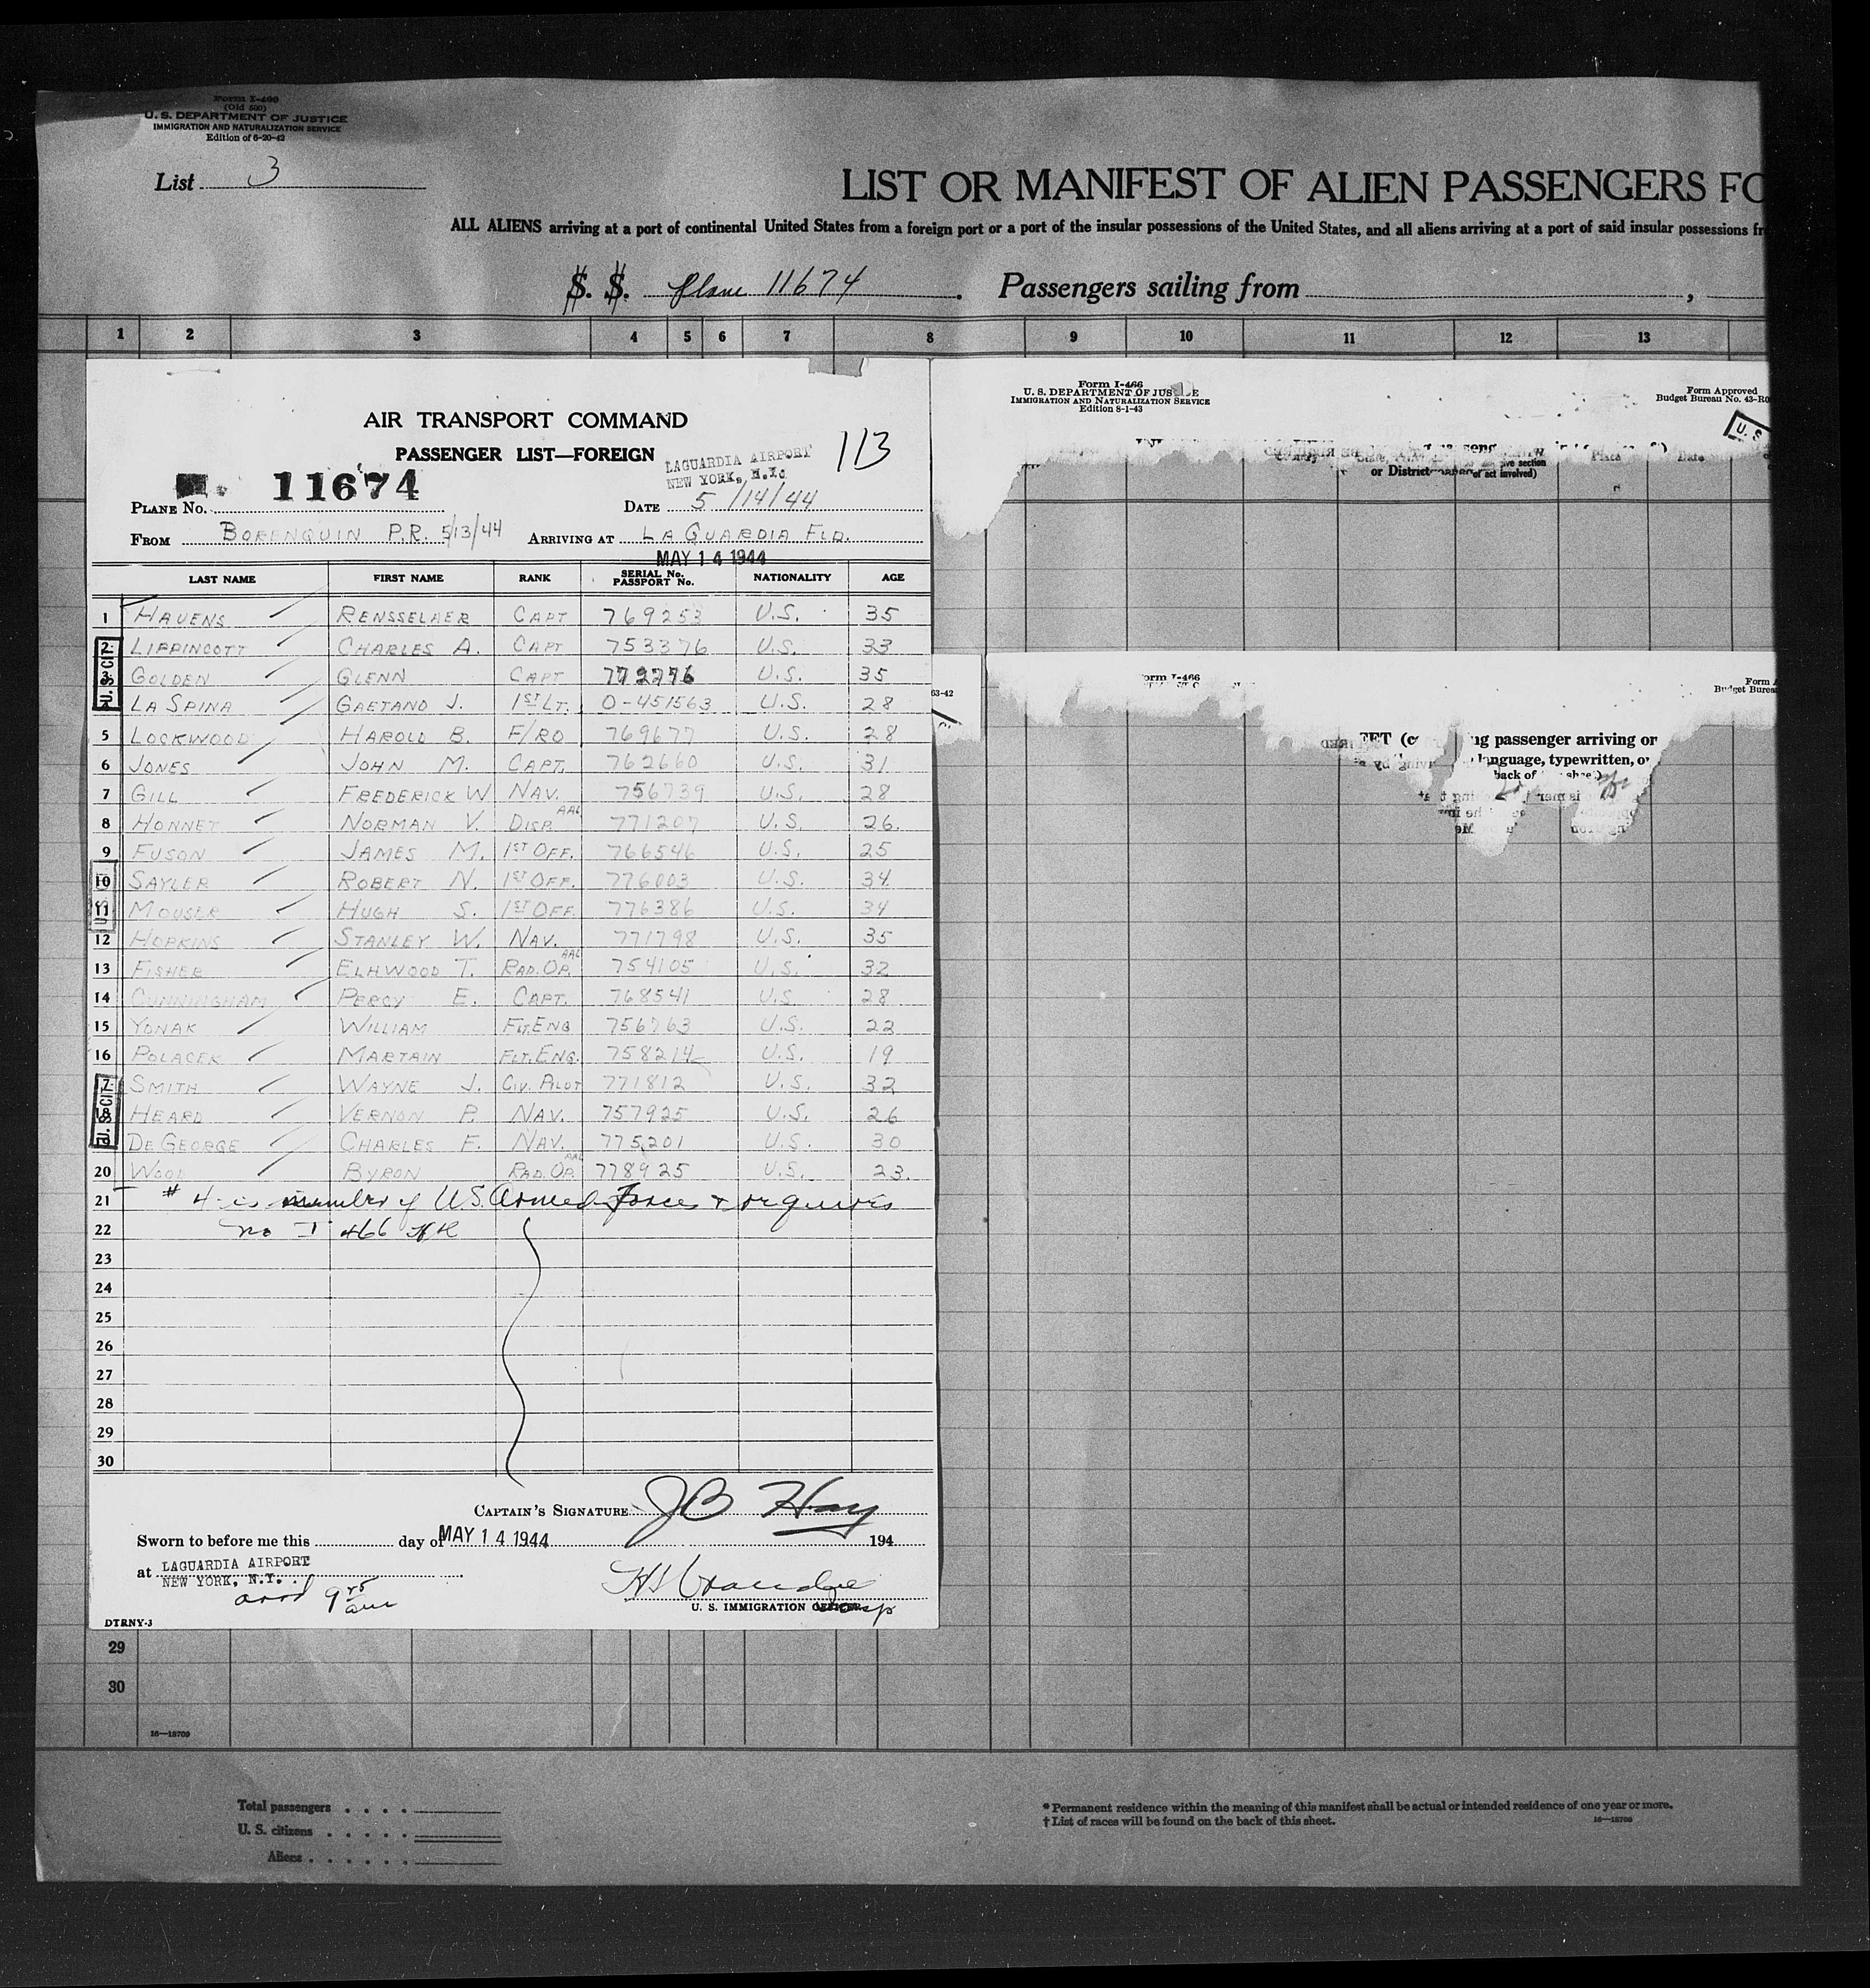 Form I-400
(Old 500)
U. S. DEPARTMENT OF JUSTICE
IMMIGRATION AND NATURALIZATION SERVICE
Edition of 6-20-42
List 3
LIST OR MANIFEST OF ALIEN PASSENGERS FO
ALL ALIENS arriving at a port of continental United States from a foreign port or a port of the insular possessions of the United States, and all aliens arriving at a port of said insular possessions fr
S. S. Plane 11674 . Passengers sailing from ,
1 2 3 4 5 6 7 8 9 10 11 12 13
AIR TRANSPORT COMMAND
PASSENGER LIST—FOREIGN
113
LAGUARDIA AIRPORT
NEW YORK, N.Y.
PLANE No. 11674 DATE 5/14/44
FROM BORENQUIN P.R. 5/13/44 ARRIVING AT LA GUARDIA FLD.
MAY 14 1944
LAST NAME FIRST NAME RANK SERIAL No. PASSPORT No. NATIONALITY AGE
1 HAVENS RENSSELAER CAPT 769253 U.S. 35
2 LIPPINCOTT CHARLES A. CAPT 753376 U.S. 33
3 GOLDEN GLENN CAPT 772776 U.S. 35
LA SPINA GAETANO J. 1ST LT. O-451563 U.S. 28
5 LOCKWOOD HAROLD B. F/RO 769677 U.S. 28
6 JONES JOHN M. CAPT. 762660 U.S. 31
7 GILL FREDERICK W NAV. 756739 U.S. 28
8 HONNET NORMAN V. DISP. AAL 771207 U.S. 26.
9 FUSON JAMES M. 1ST OFF. 766546 U.S. 25
10 SAYLER ROBERT N. 1ST OFF. 776003 U.S. 34
11 MOUSER HUGH S. 1ST OFF. 776386 U.S. 34
12 HOPKINS STANLEY W. NAV. 771798 U.S. 35
13 FISHER ELHWOOD T. RAD. OP. AAL 754105 U.S. 32
14 CUNNINGHAM PERCY E. CAPT. 768541 U.S 28
15 YONAK WILLIAM FLT. ENG 756763 U.S. 22
16 POLACEK MARTAIN FLT. ENG. 758214 U.S. 19
SMITH WAYNE J. CIV. PILOT 771812 U.S. 32
HEARD VERNON P. NAV. 757925 U.S. 26
DE GEORGE CHARLES F. NAV. 775201 U.S. 30
20 WOOD BYRON RAD. OP. AAL 778925 U.S. 23.
21 # 4 is member of U.S. Armed Forces & requires
22 no I 466
23
24
25
26
27
28
29
30
CAPTAIN'S SIGNATURE JB Hay
Sworn to before me this day of MAY 14 1944 194
at LAGUARDIA AIRPORT
NEW YORK, N.Y.
U. S. IMMIGRATION
DTRNY-3
29
30
16—18709
Total passengers
U. S. citizens
Aliens
Form I-466
U. S. DEPARTMENT OF JUS E
IMMIGRATION AND NATURALIZATION SERVICE
Edition 8-1-43
Form Approved
Budget Bureau No. 43-R0
U. S
or District
of act involved)
63-42
orm I-466
Form
Budget Bureau
ng passenger arriving or
language, typewritten, or
back of
* Permanent residence within the meaning of this manifest shall be actual or intended residence of one year or more.
† List of races will be found on the back of this sheet.
16—18709